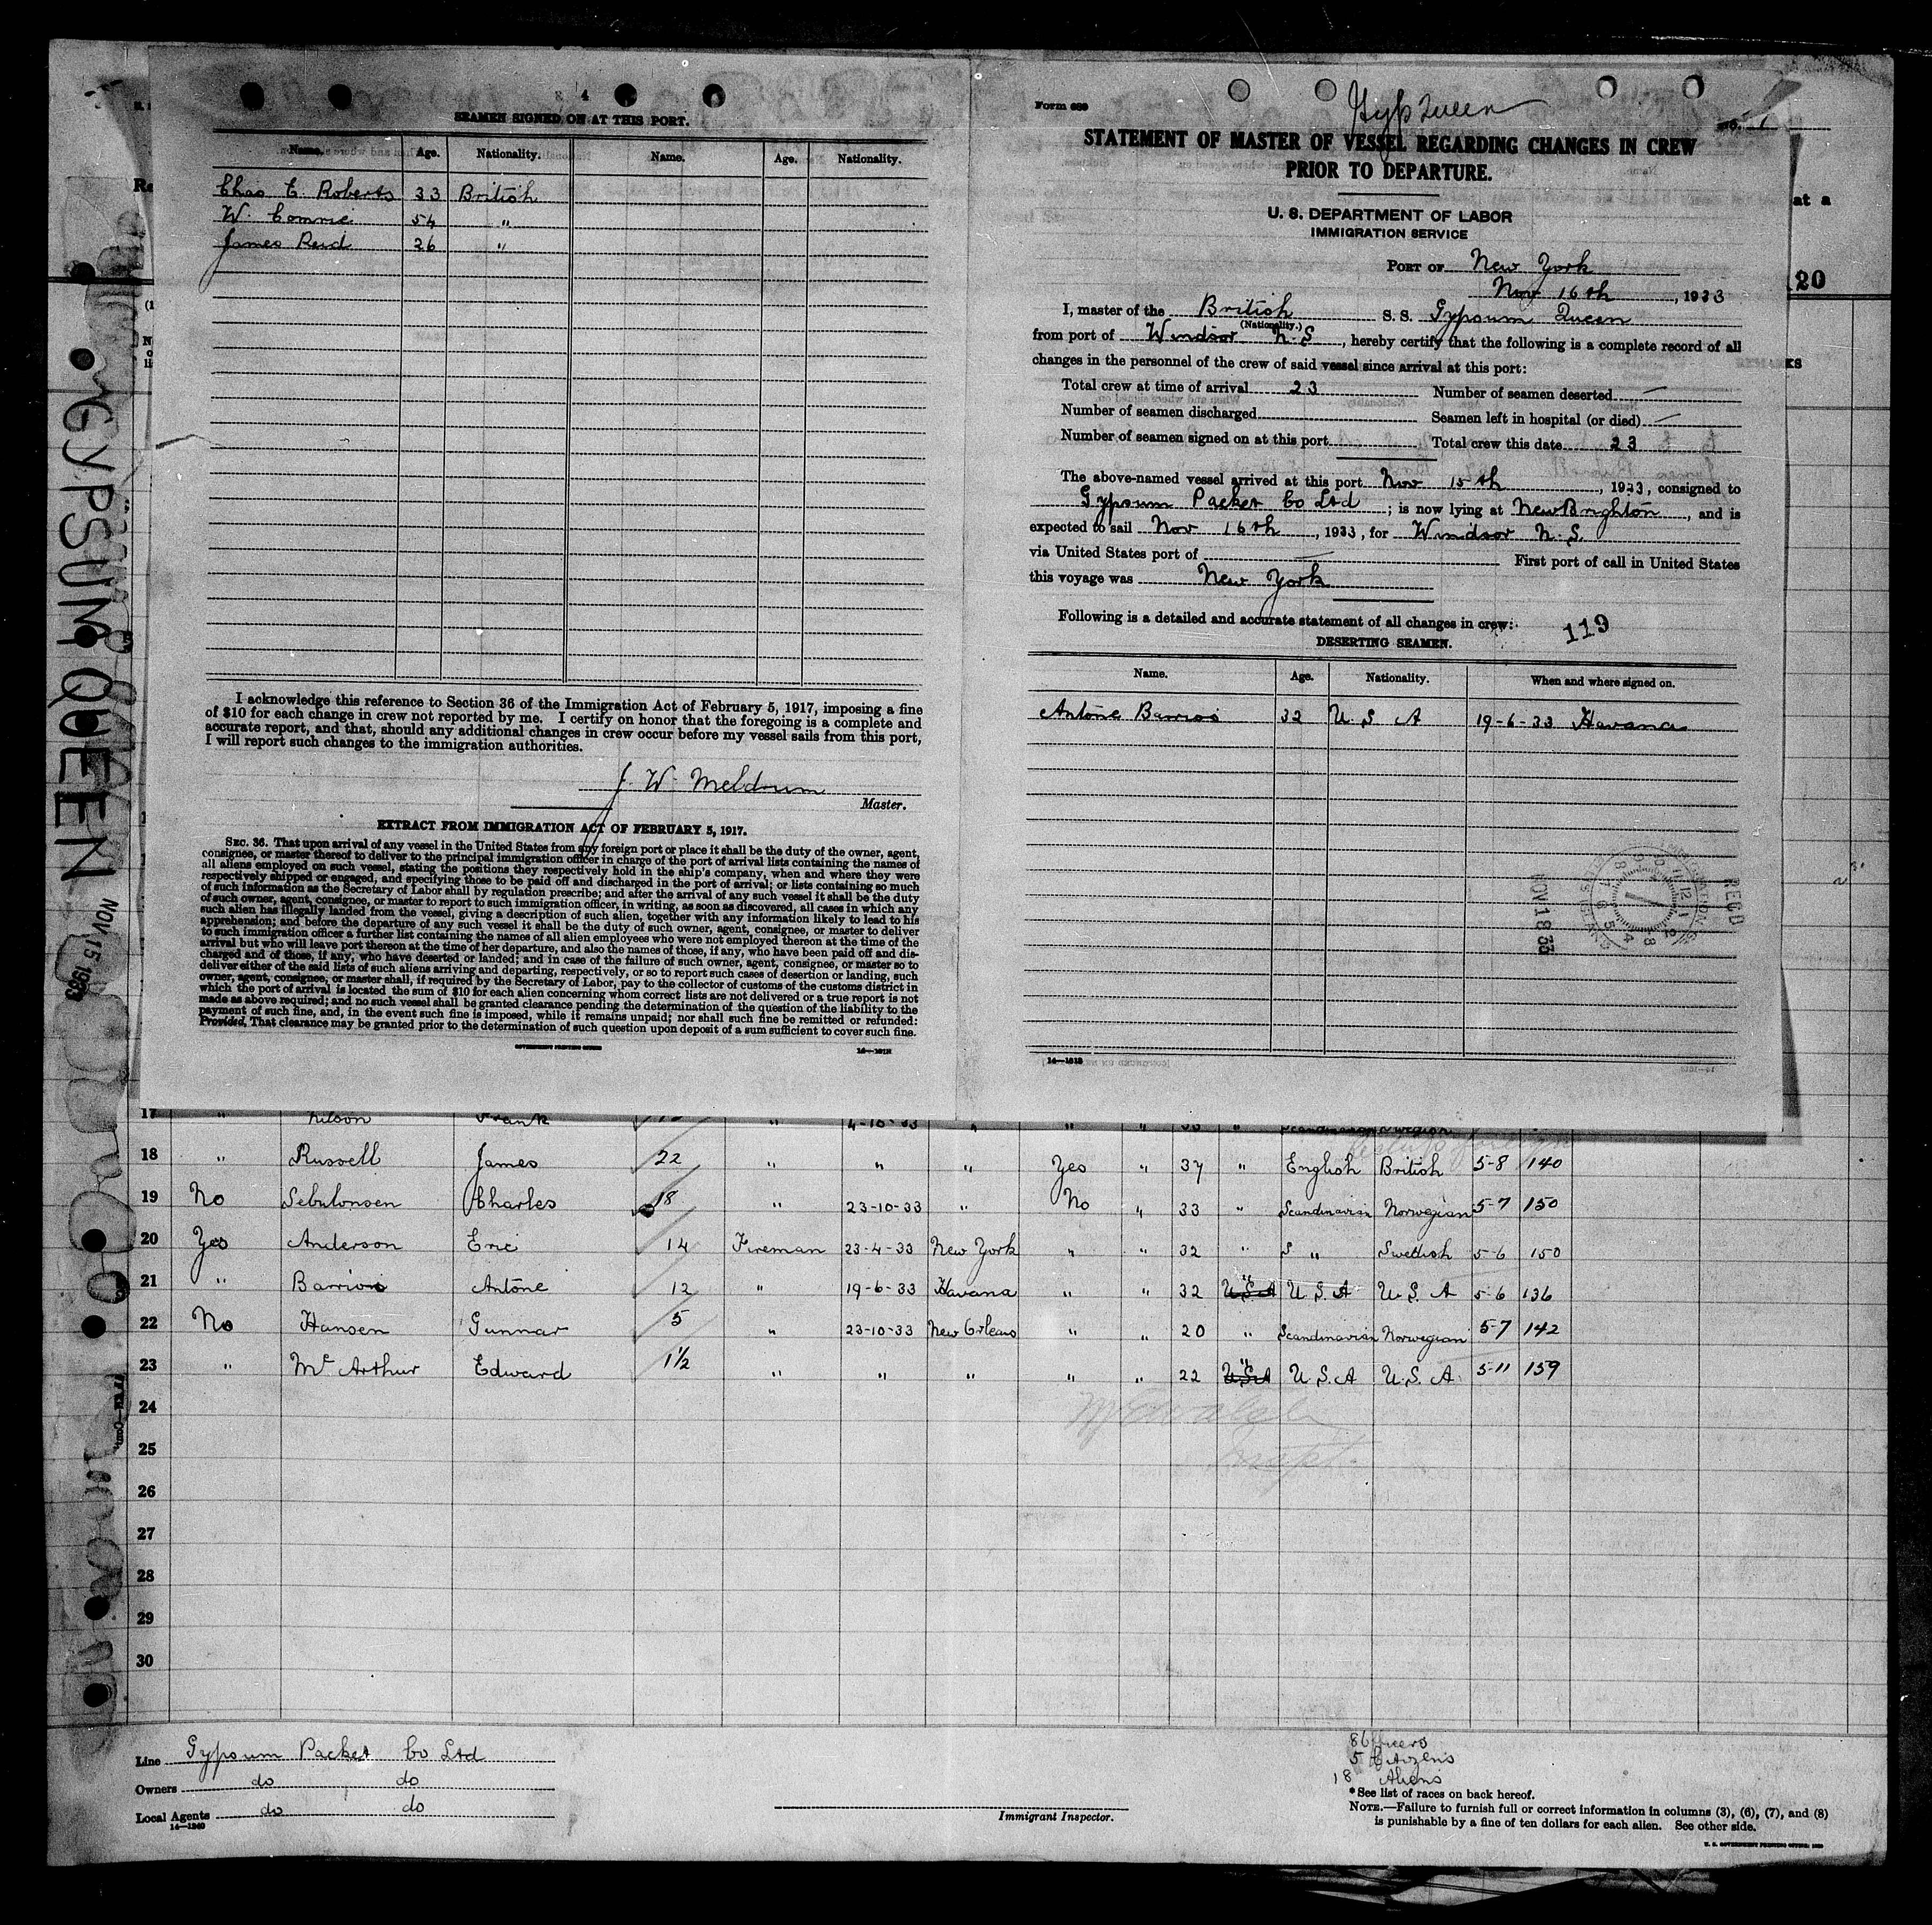 GYPSUM QUEEN NOV 15 1933
SEAMEN SIGNED ON AT THIS PORT.
Name. Age. Nationality. Name. Age. Nationality.
Chas E. Roberts 33 British
W. Comrie 54 "
James Reid 26 "
I acknowledge this reference to Section 36 of the Immigration Act of February 5, 1917, imposing a fine
of $10 for each change in crew not reported by me. I certify on honor that the foregoing is a complete and
accurate report, and that, should any additional changes in crew occur before my vessel sails from this port,
I will report such changes to the immigration authorities.
J. W. Meldrum
Master.
EXTRACT FROM IMMIGRATION ACT OF FEBRUARY 5, 1917.
SEC. 36. That upon arrival of any vessel in the United States from any foreign port or place it shall be the duty of the owner, agent,
consignee, or master thereof to deliver to the principal immigration officer in charge of the port of arrival lists containing the names of
all aliens employed on such vessel, stating the positions they respectively hold in the ship's company, when and where they were
respectively shipped or engaged, and specifying those to be paid off and discharged in the port of arrival; or lists containing so much
of such information as the Secretary of Labor shall by regulation prescribe; and after the arrival of any such vessel it shall be the duty
of such owner, agent, consignee, or master to report to such immigration officer, in writing, as soon as discovered, all cases in which any
such alien has illegally landed from the vessel, giving a description of such alien, together with any information likely to lead to his
apprehension; and before the departure of any such vessel it shall be the duty of such owner, agent, consignee, or master to deliver
to such immigration officer a further list containing the names of all alien employees who were not employed thereon at the time of the
arrival but who will leave port thereon at the time of her departure, and also the names of those, if any, who have been paid off and dis-
charged and of those, if any, who have deserted or landed; and in case of the failure of such owner, agent, consignee, or master so to
deliver either of the said lists of such aliens arriving and departing, respectively, or so to report such cases of desertion or landing, such
owner, agent, consignee, or master shall, if required by the Secretary of Labor, pay to the collector of customs of the customs district in
which the port of arrival is located the sum of $10 for each alien concerning whom correct lists are not delivered or a true report is not
made as above required; and no such vessel shall be granted clearance pending the determination of the question of the liability to the
payment of such fine, and, in the event such fine is imposed, while it remains unpaid; nor shall such fine be remitted or refunded:
Provided, That clearance may be granted prior to the determination of such question upon deposit of a sum sufficient to cover such fine.
GOVERNMENT PRINTING OFFICE
Form 689
Gyp Queen
STATEMENT OF MASTER OF VESSEL REGARDING CHANGES IN CREW
PRIOR TO DEPARTURE.
U. S. DEPARTMENT OF LABOR
IMMIGRATION SERVICE
PORT OF New York
Nov 16th, 1933
I, master of the British S. S. Gypsum Queen
(Nationality.)
from port of Windsor N.S, hereby certify that the following is a complete record of all
changes in the personnel of the crew of said vessel since arrival at this port:
Total crew at time of arrival 23 Number of seamen deserted —
Number of seamen discharged Seamen left in hospital (or died) —
Number of seamen signed on at this port Total crew this date 23
The above-named vessel arrived at this port Nov 15th, 1933, consigned to
Gypsum Packet Co Ltd; is now lying at New Brighton, and is
expected to sail Nov 16th, 1933, for Windsor N.S.
via United States port of — First port of call in United States
this voyage was New York
Following is a detailed and accurate statement of all changes in crew:
119
DESERTING SEAMEN.
Name. Age. Nationality. When and where signed on.
Antone Barrios 32 U.S A 19-6-33 Havana
REC'D
NOV 18 33
at a
120
17 " Nilson Frank " 4-10-33 " " " 33 " Scandinavian Swedish
18 " Russell James 22 " " " Yes " 37 " English British 5-8 140
19 No Sebulonsen Charles 18 " 23-10-33 " No " 33 " Scandinavian Norwegian 5-7 150
20 Yes Anderson Eric 14 Fireman 23-4-33 New York " " 32 " S " Swedish 5-6 150
21 " Barrios Antone 12 " 19-6-33 Havana " " 32 U.S.A " U.S.A U.S.A 5-6 136
22 No Hansen Gunnar 5 " 23-10-33 New Orleans " " 20 " Scandinavian Norwegian 5-7 142
23 " McArthur Edward 1½ " " " " " 22 U.S.A " U.S.A U.S.A. 5-11 159
24
25
26
27
28
29
30
Line Gypsum Packet Co Ltd
Owners do do
Local Agents do do
14—1240
Immigrant Inspector.
8 Officers
5 Citizens
18 Aliens
*See list of races on back hereof.
NOTE.—Failure to furnish full or correct information in columns (3), (6), (7), and (8)
is punishable by a fine of ten dollars for each alien. See other side.